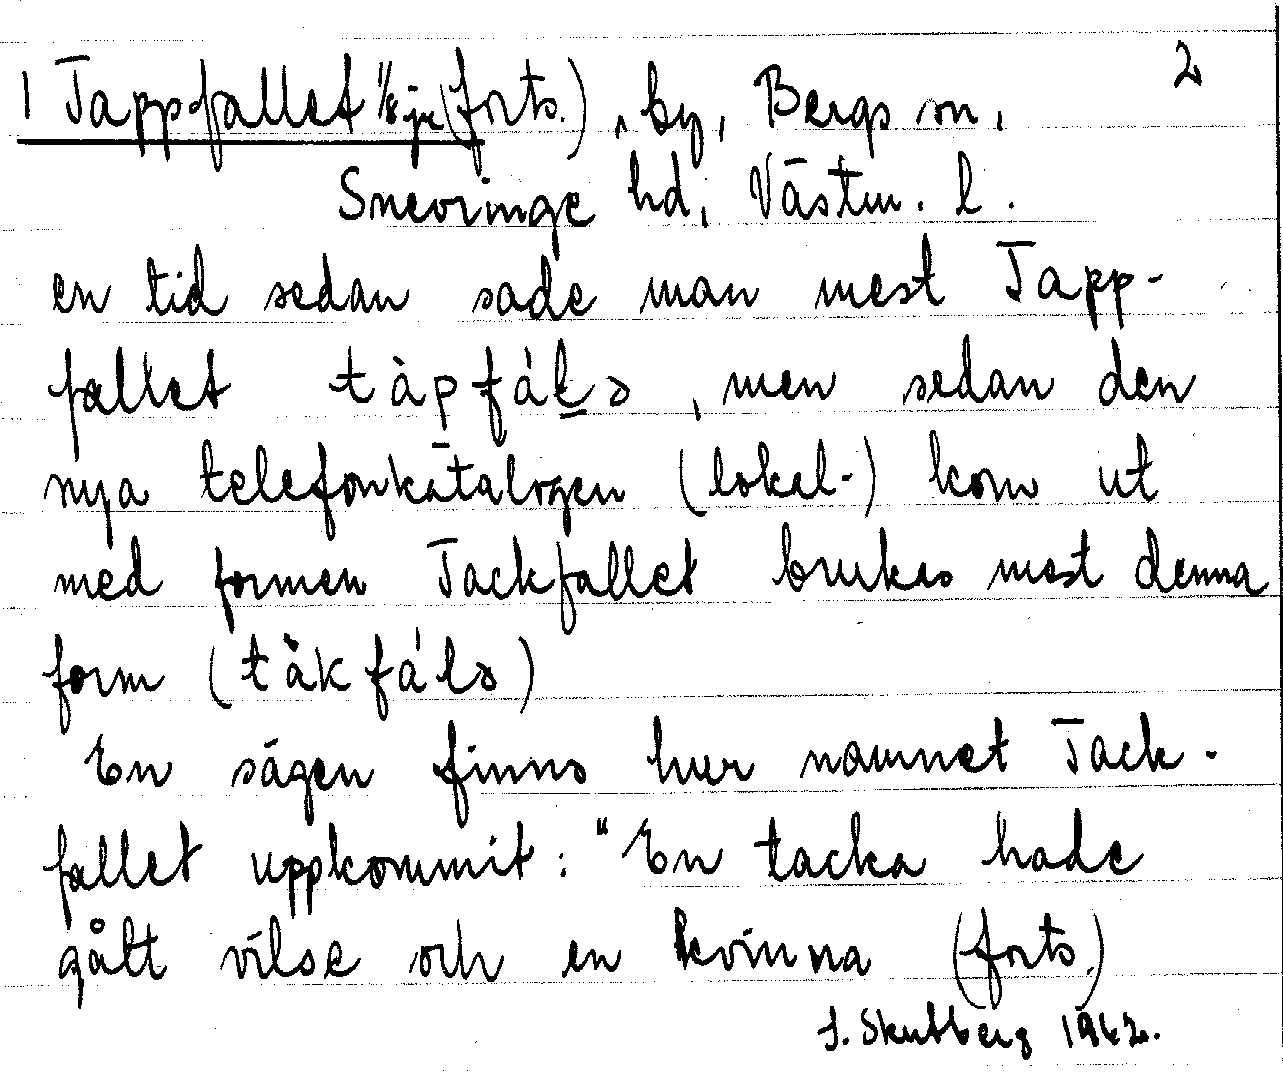 2
1 Tappfallet 1/8 je (forts.), by, Bergs sn,
Snevringe hd, Västm. l.
en tid sedan sade man mest Tapp-
fallet tàpfáḻə, men sedan den
nya telefonkatalogen (lokal-) kom ut
med formen Tackfallet brukas mest denna
form (tàkfálə)
En sägen finns hur namnet Tack-
fallet uppkommit: "En tacka hade
gått vilse och en kvinna (forts.)
S. Skutberg 1962.